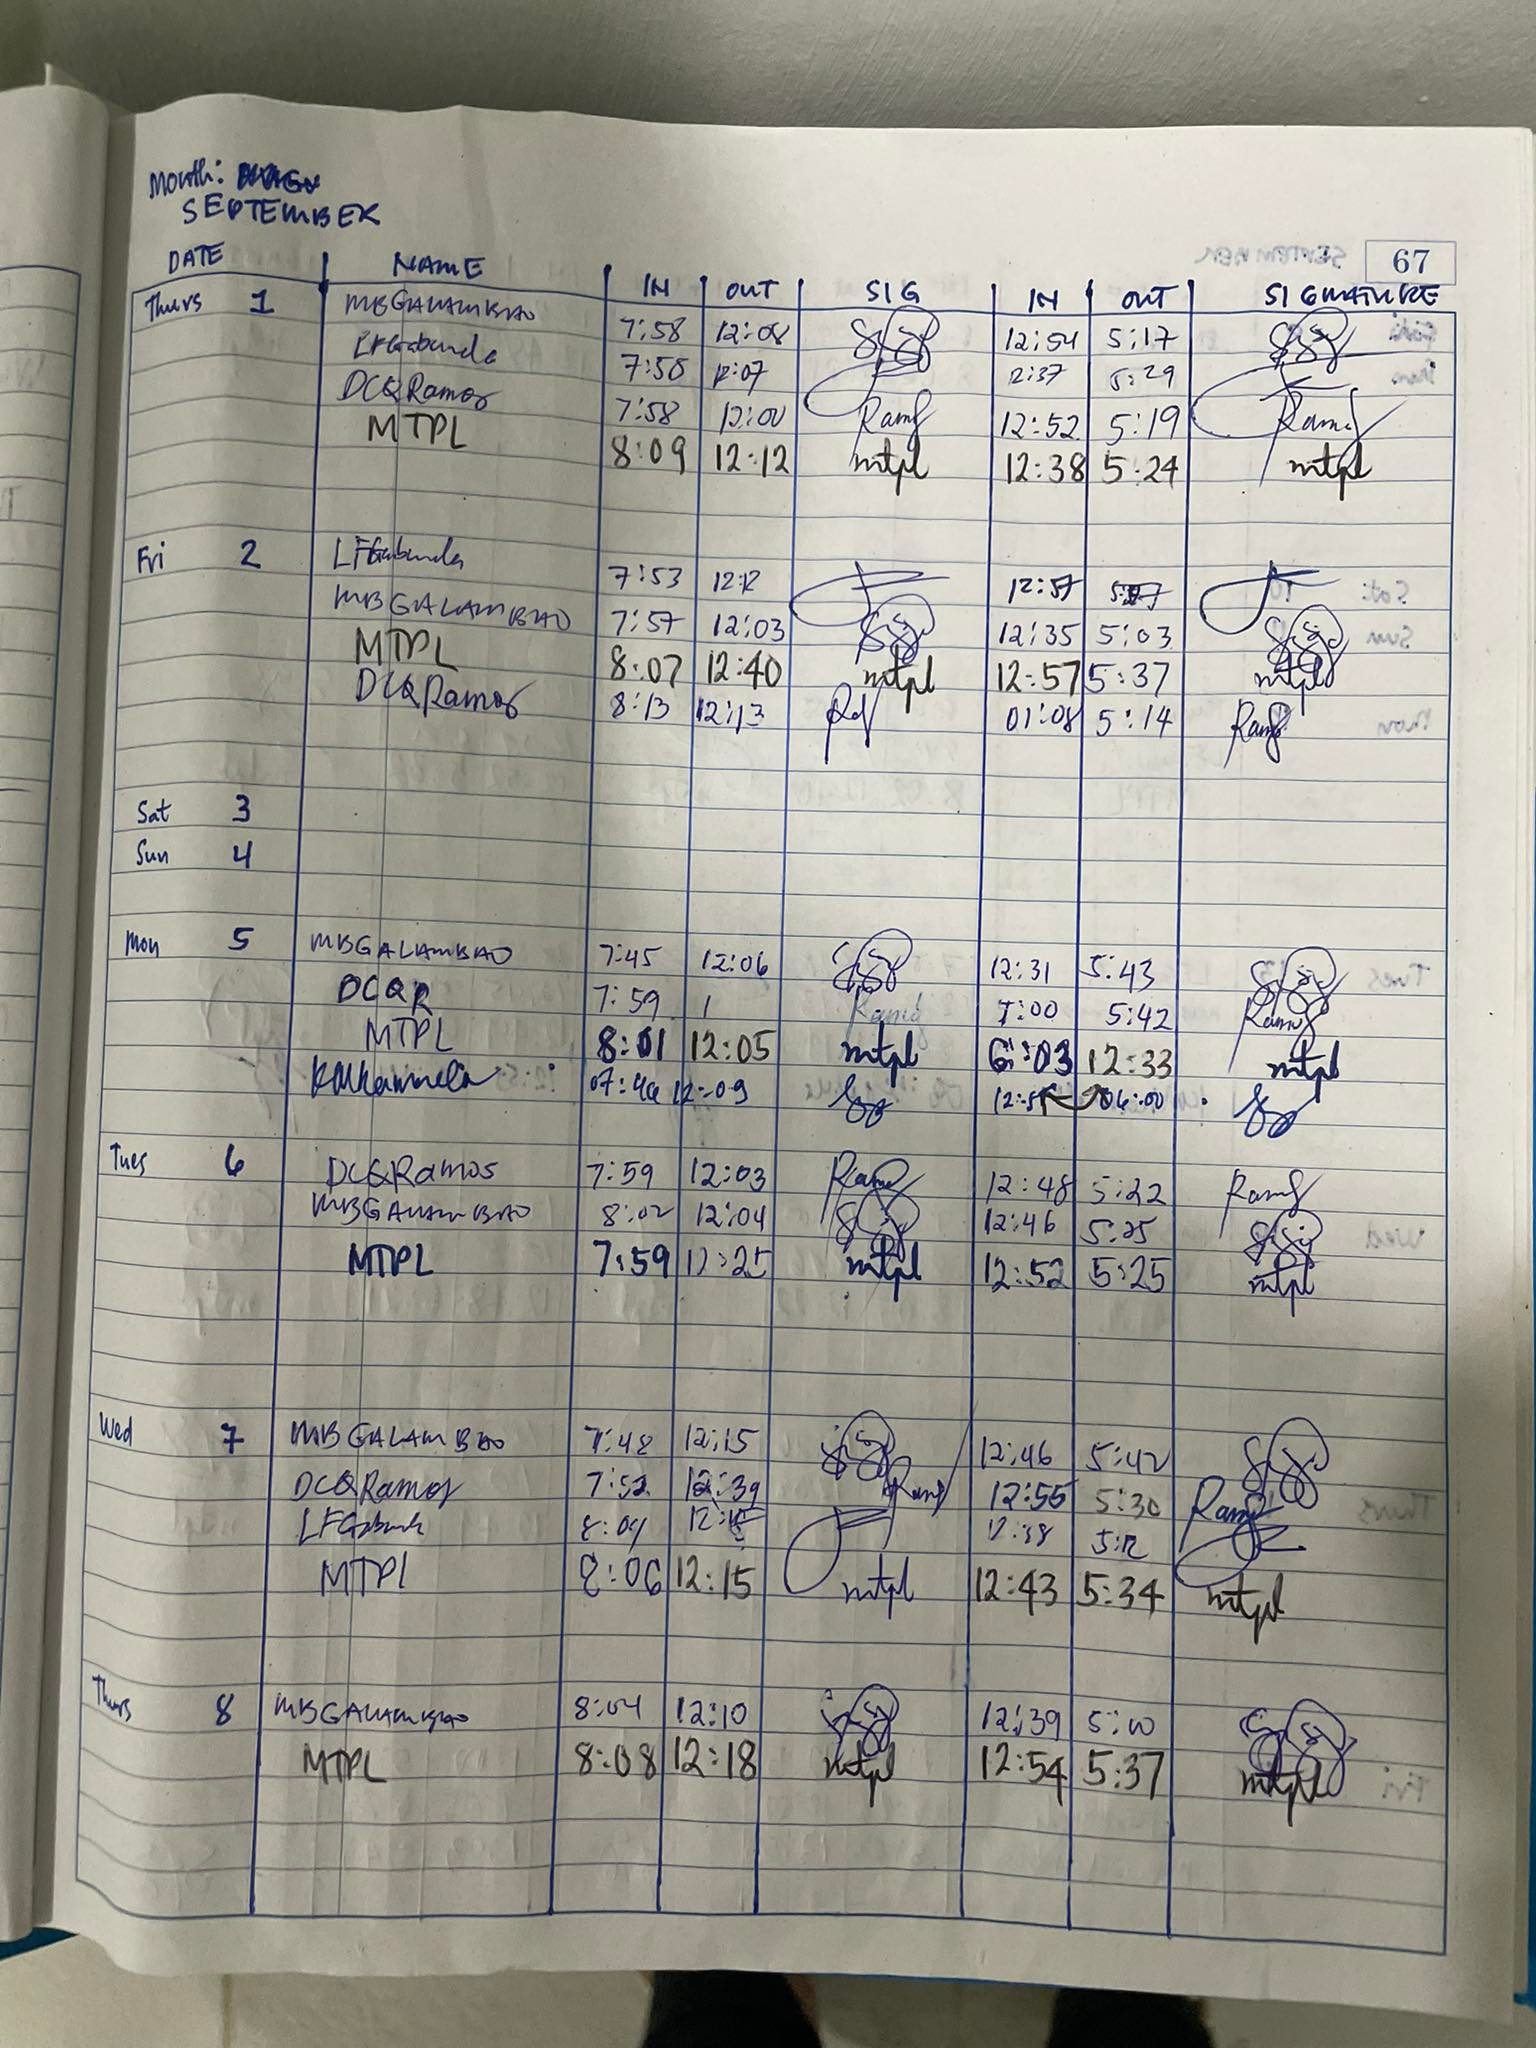 Month:
SEPTEMBER
67
DATE NAME IN OUT SIG IN OUT SIGNATURE
Thurs 1 MBGALAMBAO 7:58 12:08 12:54 5:17
LFGabunda 7:58 12:07 12:37 5:29
DCQRamos 7:58 12:00 Ramos 12:52 5:19 Ramos
MTPL 8:09 12:12 mtpl 12:38 5:24 mtpl
Fri 2 LFGabunda 7:53 12:12 12:57
MBGALAMBAO 7:57 12:03 12:35 5:03
MTPL 8:07 12:40 mtpl 12:57 5:37 mtpl
DCQRamos 8:13 12:13 01:08 5:14 Ramos
Sat 3
Sun 4
Mon 5 MBGALAMBAO 7:45 12:06 12:31 5:43
DCQR 7:59 1:00 5:42 Ramos
MTPL 8:01 12:05 mtpl 6:03 12:33 mtpl
07:46 12:09 06:00
Tues 6 DCQRamos 7:59 12:03 Ramos 12:48 5:22 Ramos
MBGALAMBAO 8:02 12:04 12:46 5:25
MTPL 7:59 12:25 mtpl 12:52 5:25 mtpl
Wed 7 MBGALAMBAO 7:48 12:15 12:46 5:42
DCQRamos 7:52 12:39 Ramos 12:55 5:30 Ramos
LFGabunda 8:04 12:38 5:12
MTPL 8:06 12:15 mtpl 12:43 5:34 mtpl
Thurs 8 MBGALAMBAO 8:04 12:10 12:39 5:10
MTPL 8:08 12:18 mtpl 12:54 5:37 mtpl